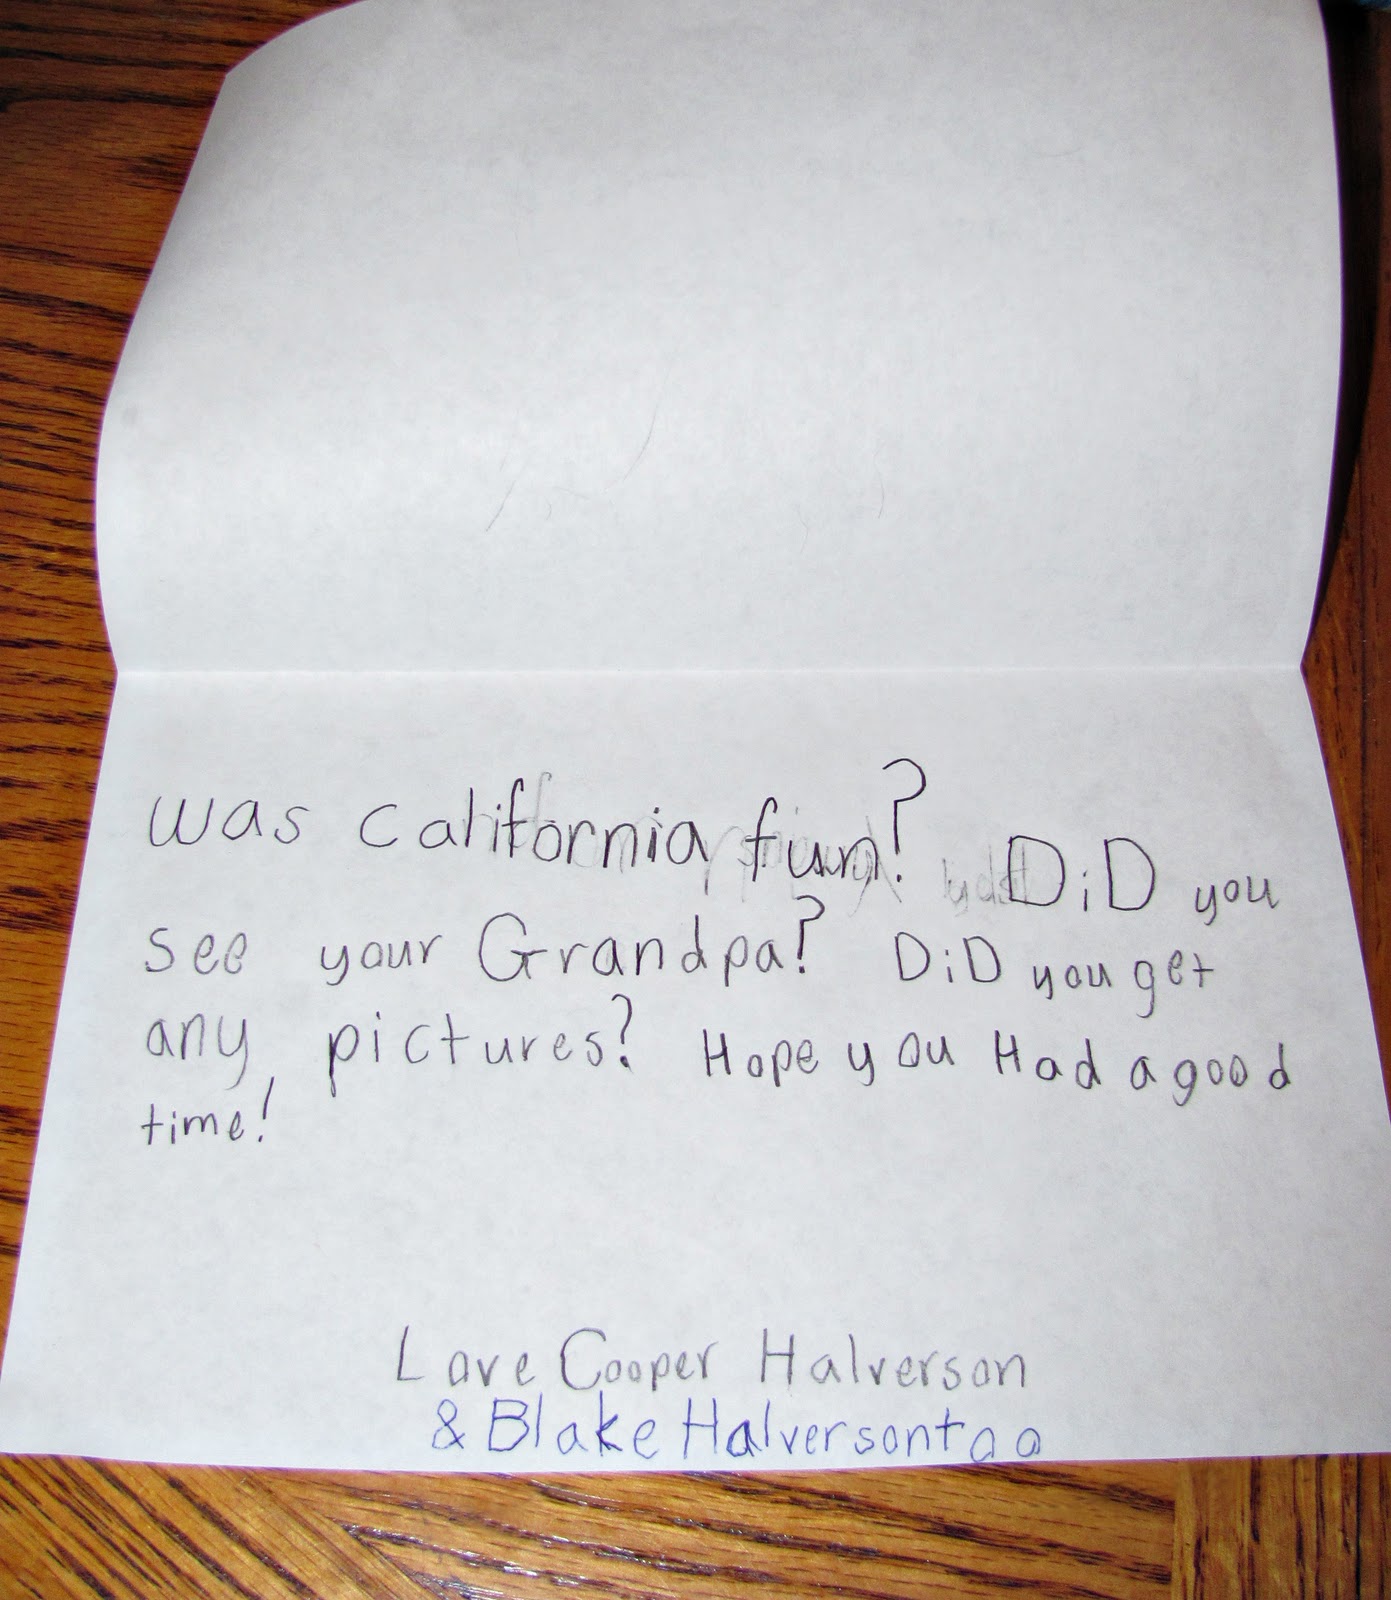 was california fun? DiD you
see your Grandpa? DiD you get
any pictures? Hope you Had a good
time!
Love Cooper Halverson
& Blake Halverson too